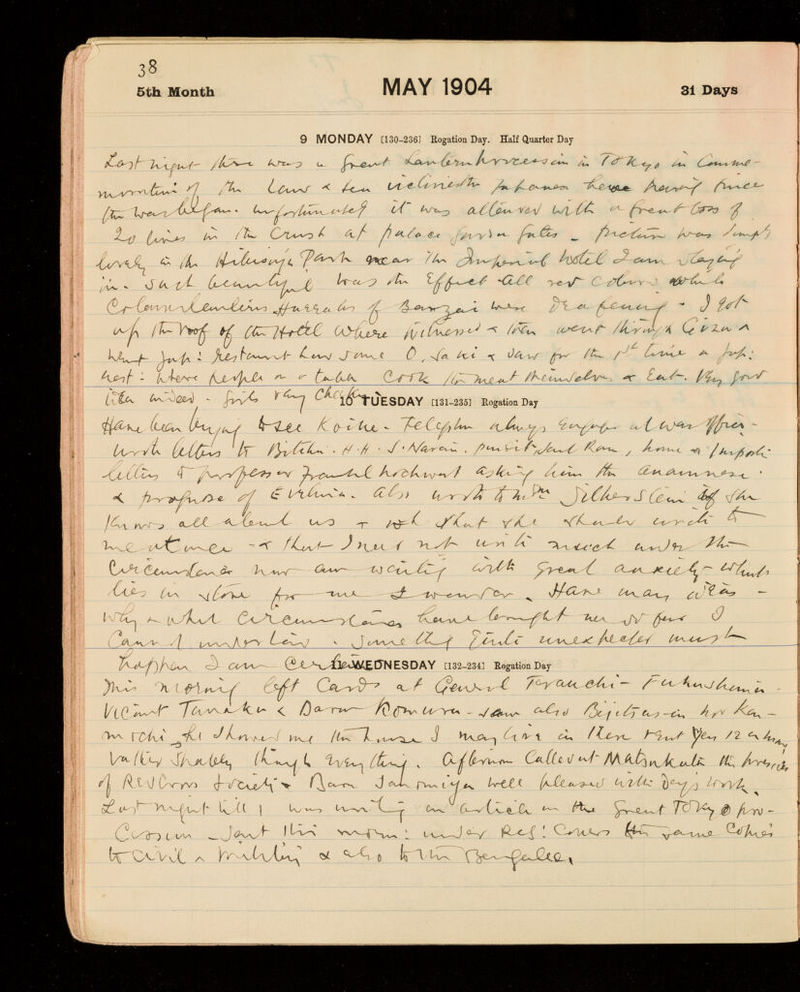 38
5th Month MAY 1904 31 Days
9 MONDAY [130-236] Rogation Day. Half Quarter Day
Last night there was a great Lantern procession in Tokyo in Comme-
moration of the Land & sea victories the Japanese have having since
the war began. unfortunately it was attended with a great loss of
20 lives in the Crush at palace gates - picture was simply
lovely in the Hibiya Park near the Imperial Hotel I am staying
in. Such beautiful was the Effect all red Colour
Hurrahs of Banzai were deafening - I got
up the roof of the Hotel where witnessed & then went through Ginza &
Jap: restaurant had some O. Saki & saw for the 1st time a Jap:
where people on a table Cook the meat themselves & Eat. Very good
idea indeed - girls very
10 TUESDAY [131-235] Rogation Day
Have been trying to see Koike. Telephone always engaged at War Office -
wrote letters to H.H. Ram, home &
letters to professor Frankl Hochwart asking him the anamnese
& prognose of Evelina. Also wrote to Silberstein if she
Knows all about us & that she should write to
me at once - & that I need not write much under the
Circumstances now am waiting with great anxiety - what
lies in store for me I wonder. Have many ideas -
why & what circumstances have brought her so far I
Cannot understand. Something quite unexpected must
happen I am Certain
11 WEDNESDAY [132-234] Rogation Day
This morning left Cards at General Terauchi - Fukushima
Vicomt Tanaka & Baron Komura - saw also in
he showed me the house I may live in there rent Yen 12
rather shabby though everything. Afternoon Called at Matsukata the
of Red Cross Society & Baron Sanomiya well pleased with day's work.
Last night till 1 was writing an article on the great Tokyo pro-
Cession - Sent this morn: under Reg: Covers the same Copies
to Civil & Military & also to the Bengalee.